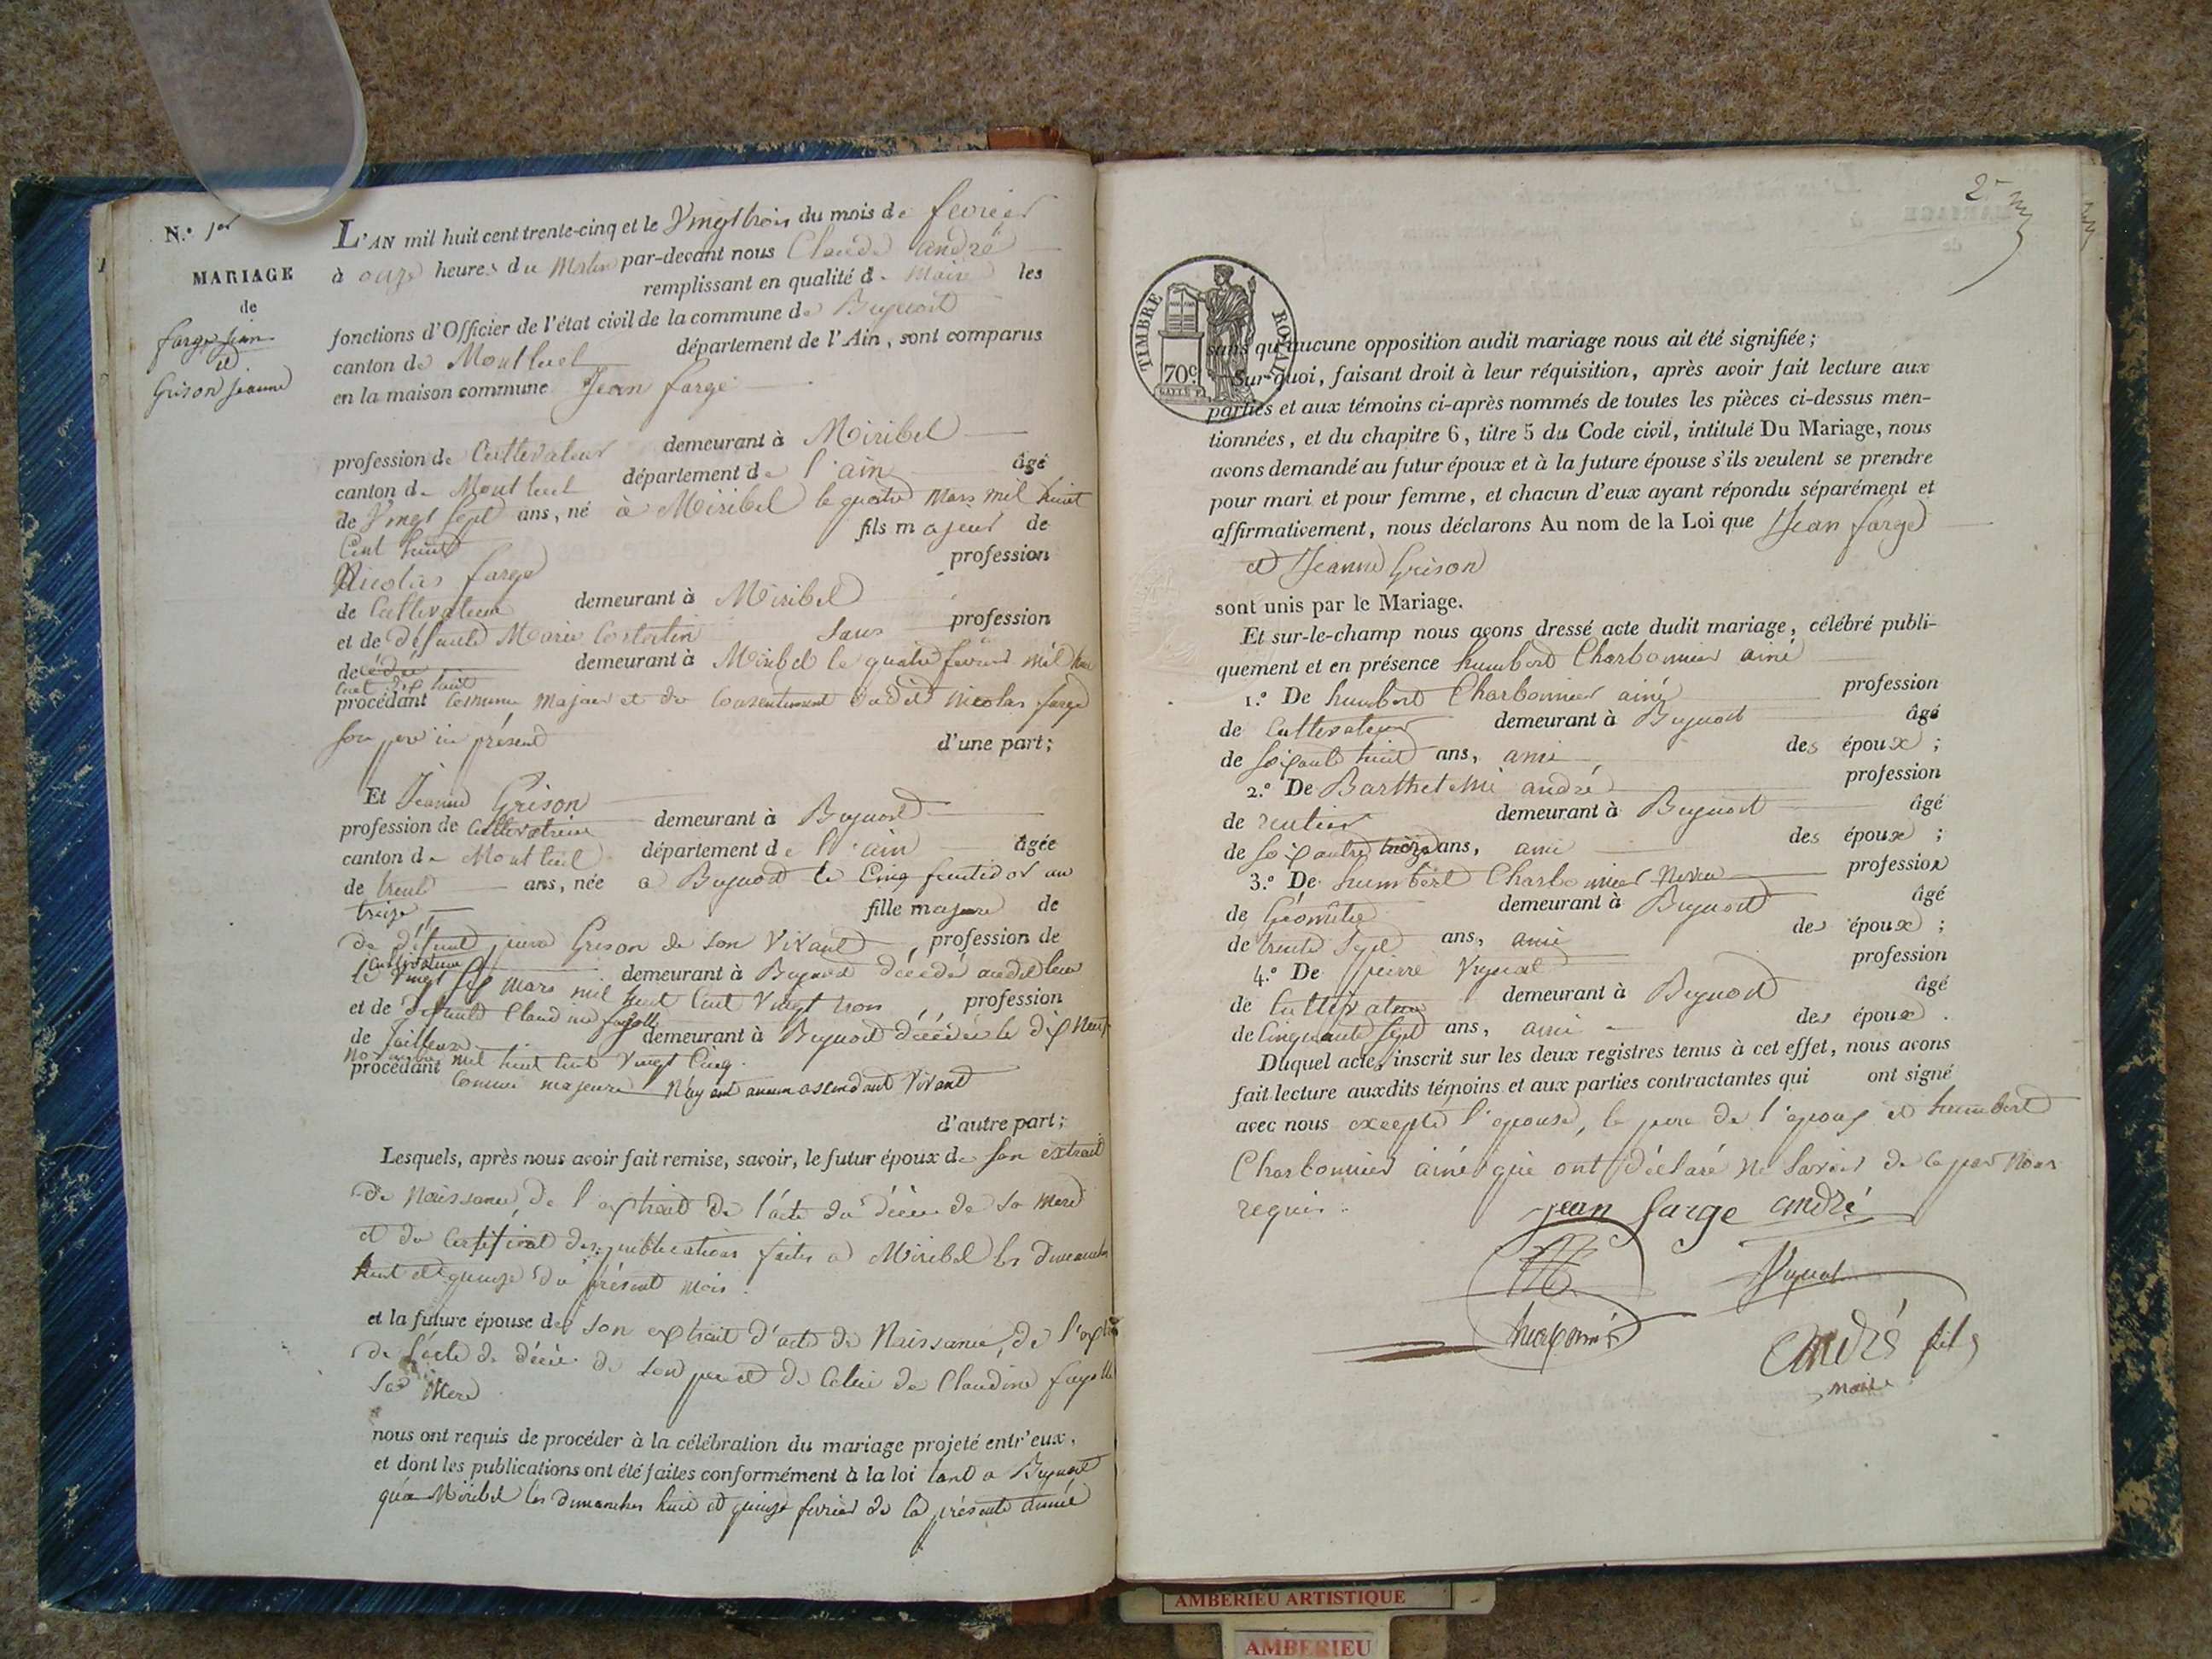 N.° 1er
MARIAGE
de
farge jean
et
Grison jeanne
L'AN mil huit cent trente-cinq et le Vingt trois du mois de fevrier
à onze heures du Matin par-devant nous Claude andré
remplissant en qualité de Maire les
fonctions d'Officier de l'état civil de la commune de Beynost
canton de Montluel département de l'Ain, sont comparus
en la maison commune Jean farge
profession de Cultivateur demeurant à Miribel
canton de Montluel département de l'ain âgé
de Vingt sept ans, né à Miribel le quatre Mars mil huit
Cent huit fils majeur de
Nicolas farge profession
de Cultivateur demeurant à Miribel
et de défunte Marie sans profession
de décédée demeurant à Miribel le quatre fevrier mil huit
Cent dix huit
procédant Comme Majeur et du Consentement dudit Nicolas farge
son pere ici présent d'une part;
Et Jeanne Grison
profession de Cultivatrice demeurant à Beynost
canton de Montluel département de l'ain âgée
de trente ans, née a Beynost le Cinq fructidor an
treize fille majeure de
de défunt pierre Grison de son Vivant profession de
Cultivateur demeurant à Beynost décédé audit lieu
le Vingt six mars mil huit Cent Vingt trois
et de défunte Claudine fayolle profession
de tailleuse demeurant à Beynost décédée le dix Neuf
Novembre mil huit Cent Vingt Cinq.
procédant Comme majeure N'ayant aucun ascendant Vivant
d'autre part;
Lesquels, après nous avoir fait remise, savoir, le futur époux de son extrait
de Naissance, de l'extrait de l'acte du décès de sa mere
et du Certificat des publications faites a Miribel les dimanches
huit et quinze du présent mois.
et la future épouse de son extrait d'acte de Naissance, de l'extrait
de l'acte de décès de son pere et de Celui de Claudine fayolle
sa Mere
nous ont requis de procéder à la célébration du mariage projeté entr'eux,
et dont les publications ont été faites conformément à la loi tant a Beynost
qu'a Miribel les dimanches huit et quinze fevrier de la présente année
2e
TIMBRE ROYAL
70c.
sans qu'aucune opposition audit mariage nous ait été signifiée;
Sur quoi, faisant droit à leur réquisition, après avoir fait lecture aux
parties et aux témoins ci-après nommés de toutes les pièces ci-dessus men-
tionnées, et du chapitre 6, titre 5 du Code civil, intitulé Du Mariage, nous
avons demandé au futur époux et à la future épouse s'ils veulent se prendre
pour mari et pour femme, et chacun d'eux ayant répondu séparément et
affirmativement, nous déclarons Au nom de la Loi que Jean farge
et Jeanne Grison
sont unis par le Mariage.
Et sur-le-champ nous avons dressé acte dudit mariage, célébré publi-
quement et en présence humbert Charbonnier ainé
1.° De humbert Charbonnier ainé profession
de Cultivateur demeurant à Beynost âgé
de soixante huit ans, ami des époux;
2.° De Barthelemi andré profession
de rentier demeurant à Beynost âgé
de soixante treize ans, ami des époux;
3.° De humbert Charbonnier Neveu profession
de Géomètre demeurant à Beynost âgé
de trente sept ans, ami des époux;
4.° De pierre Vignat profession
de Cultivateur demeurant à Beynost âgé
de Cinquante sept ans, ami des époux.
Duquel acte, inscrit sur les deux registres tenus à cet effet, nous avons
fait lecture auxdits témoins et aux parties contractantes qui ont signé
avec nous excepté l'epouse, le pere de l'epoux et humbert
Charbonnier ainé qui ont déclaré Ne Savoir de ce par Nous
requis.
jean farge andré
Vignat
Charbonnier
André fils
maire
AMBERIEU ARTISTIQUE
AMBERIEU